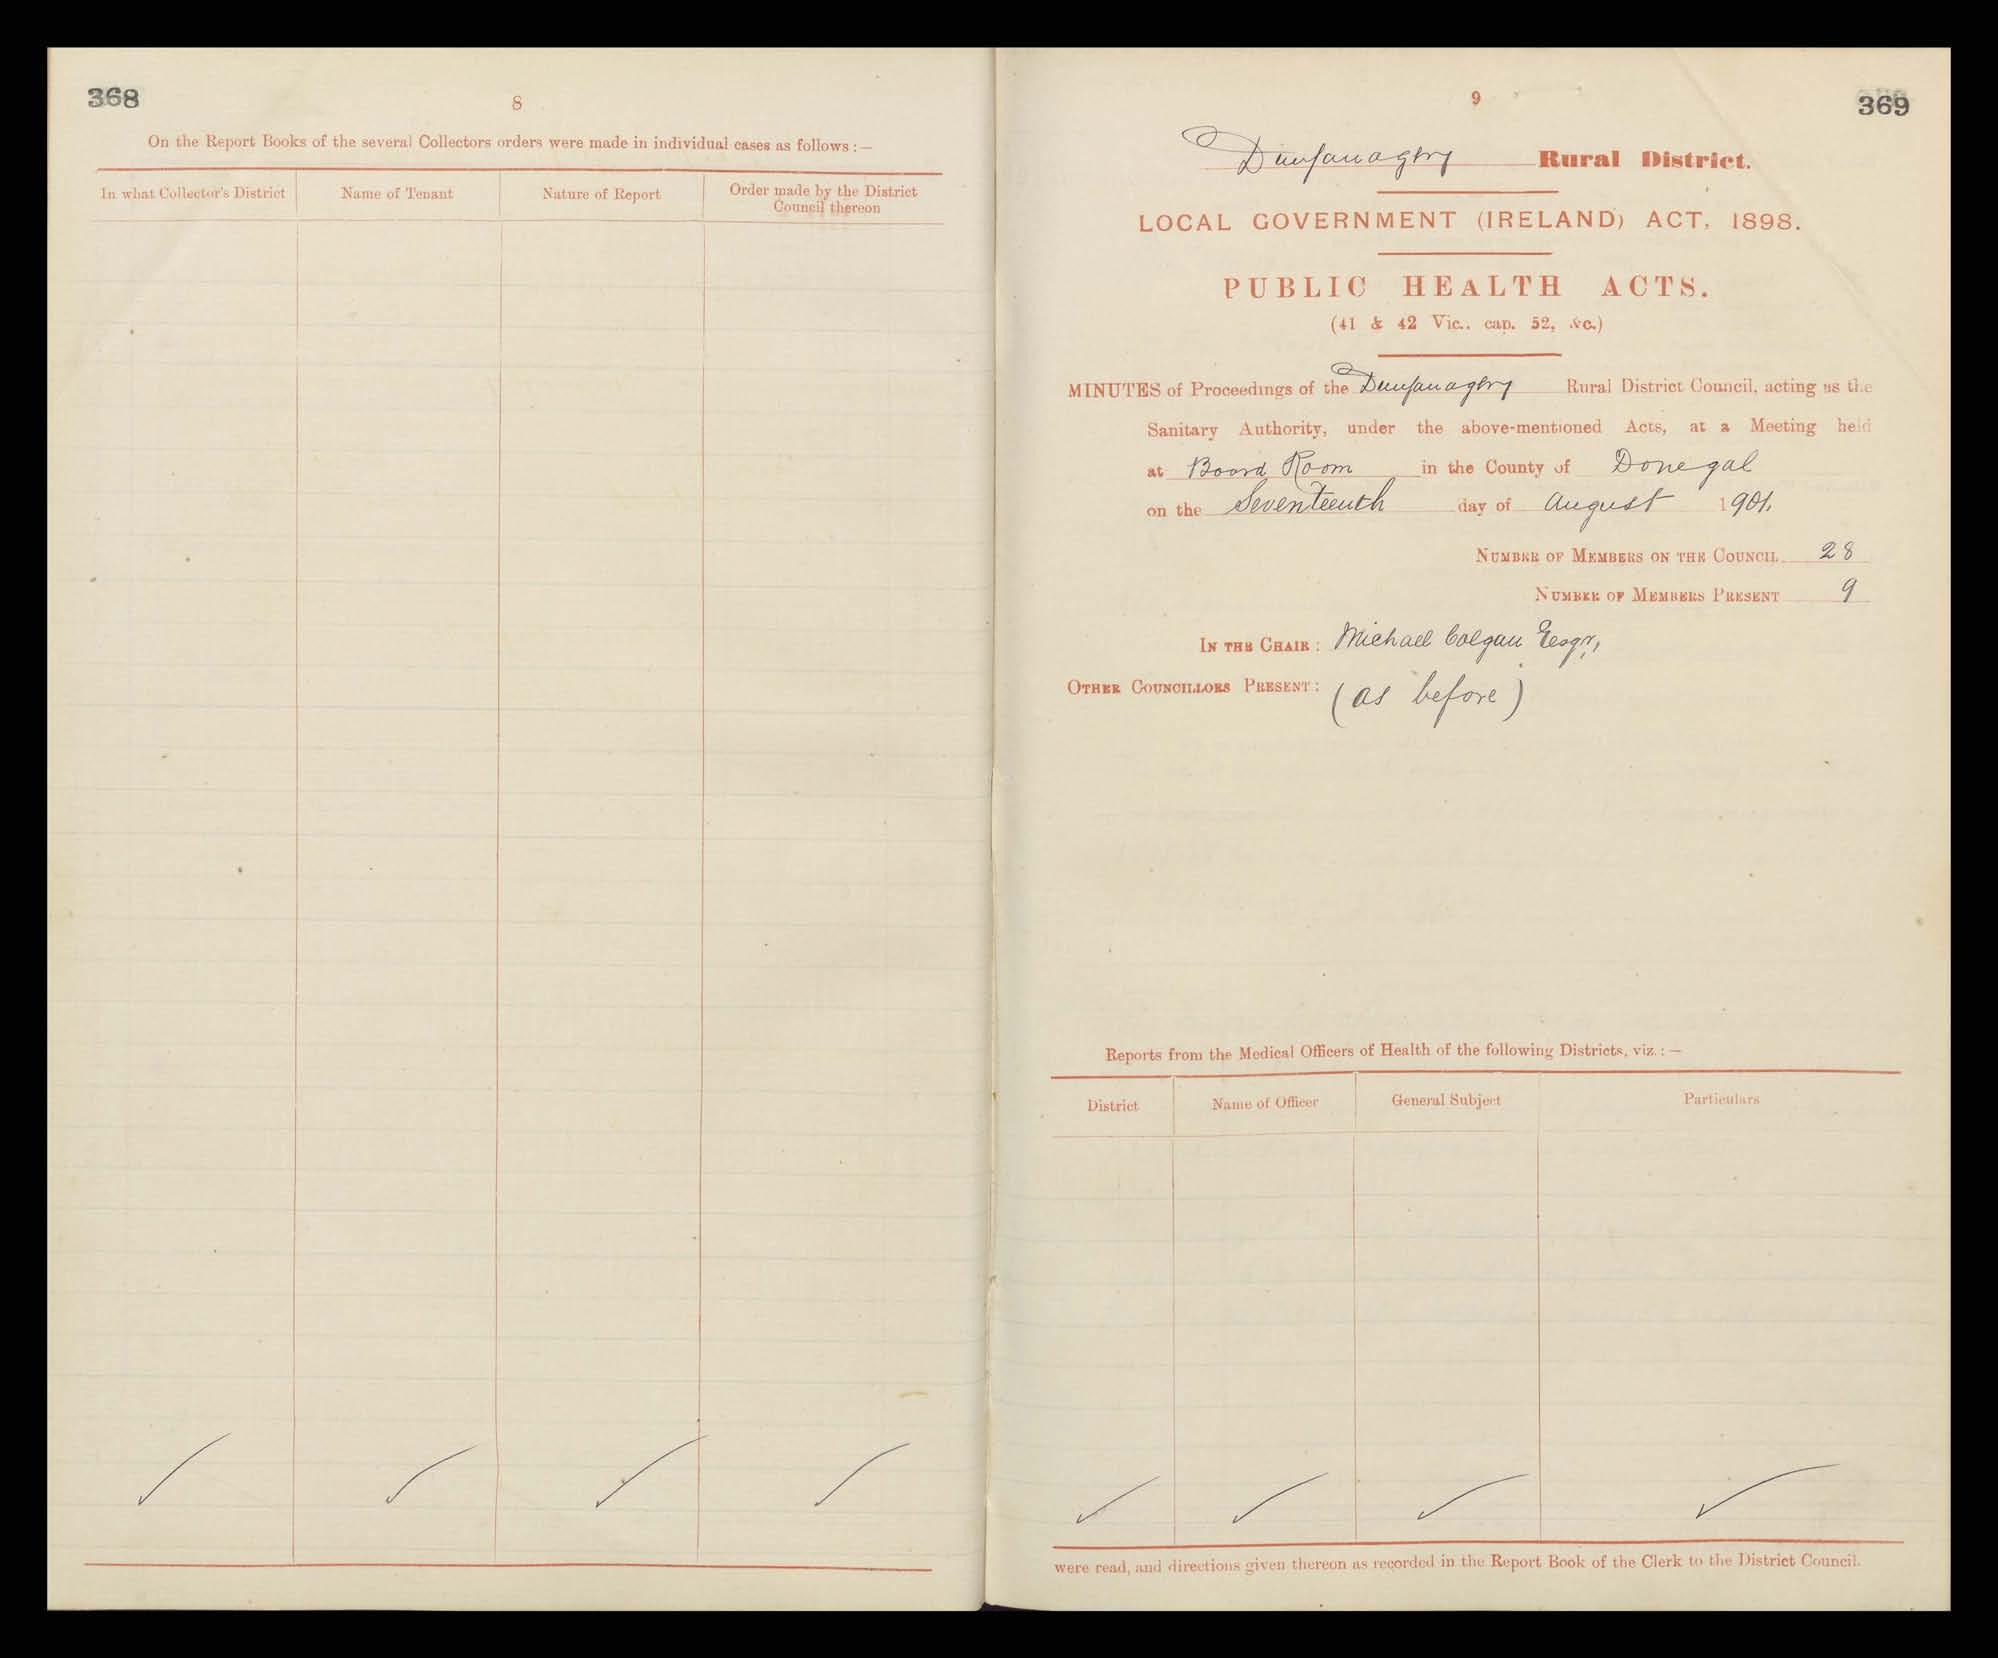 368
8
On the Report Books of the several Collectors orders were made in individual cases as follows :—
In what Collector's District
Name of Tenant
Nature of Report
Order made by the District
Council thereon
9
369
Dunfanaghy Rural District.
LOCAL GOVERNMENT (IRELAND) ACT, 1898.
PUBLIC HEALTH ACTS.
(41 & 42 Vic., cap. 52, &c.)
MINUTES of Proceedings of the Dunfanaghy Rural District Council, acting as the
Sanitary Authority, under the above-mentioned Acts, at a Meeting held
at Board Room in the County of Donegal
on the Seventeenth day of August 1901.
NUMBER OF MEMBERS ON THE COUNCIL 28
NUMBER OF MEMBERS PRESENT 9
IN THE CHAIR : Michael Colgan Esqr,
OTHER COUNCILLORS PRESENT : (as before)
Reports from the Medical Officers of Health of the following Districts, viz. :—
District
Name of Officer
General Subject
Particulars
were read, and directions given thereon as recorded in the Report Book of the Clerk to the District Council.